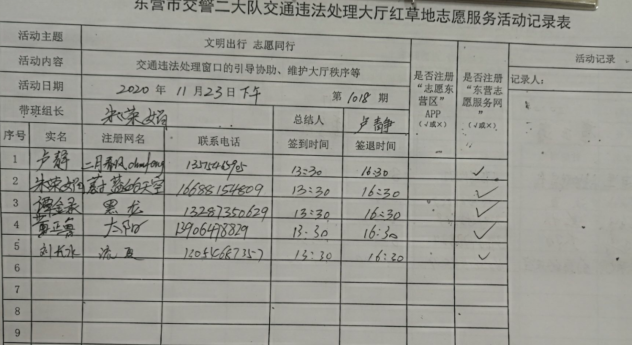 东营市交警二大队交通违法处理大厅红草地志愿服务活动记录表
活动主题 文明出行 志愿同行
活动内容 交通违法处理窗口的引导协助、维护大厅秩序等
活动日期 2020年 11月23日下午 第1018期
是否注册“志愿东营区”APP(√或×) 是否注册“东营志愿服务网”(√或×)
活动记录
记录人:
带班组长 总结人 卢静
序号 实名 注册网名 联系电话 签到时间 签退时间
1 卢静 二月春风 13:30 16:30 ✓
2 16688154809 13:30 16:30 ✓
3 黑龙 13287350629 13:30 16:30 ✓
4 太阳 13906498829 13:30 16:30 ✓
5 13:30 16:30 ✓
6
7
8
9